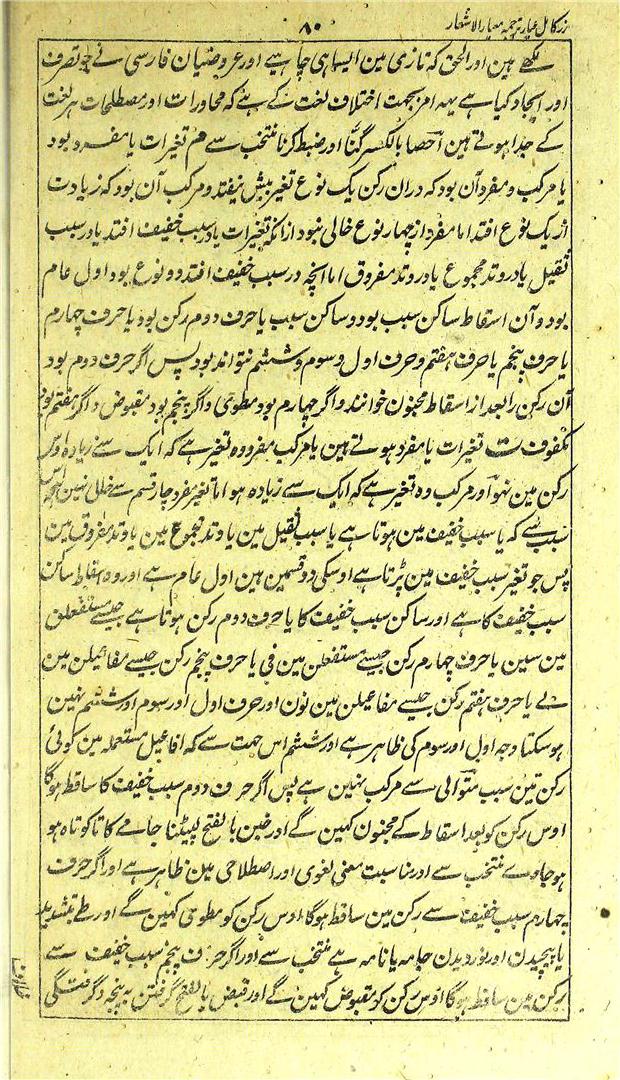 زر کامل عیار ترجمہ معیار الاشعار
۸۰
لکھے ہین اور الحق کہ تازی مین ایسا ہی چاہیے اور عروضیان فارسی نے جو تصرف
اور ایجاد کیا ہے یہہ امر بجہت اختلاف لغت کے ہے کہ محاورات اور مصطلحات ہر لغت
کے جدا ہوتے ہین احصا بالکسر گننا اور ضبط کرنا منتخب سے هم تغیرات یا مفرد بود
یا مرکب و مفرد آن بود که دران رکن یک نوع تغیر بیش نیفتد و مرکب آن بود که زیادت
از یک نوع افتد اما مفرد از چهار نوع خالی نبود از آنکه تغیرات یا در سبب خفیف افتد یا در سبب
ثقیل یا در وتد مجموع یا در وتد مفروق اما آنچه در سبب خفیف افتد دو نوع بود اول عام
بود و آن اسقاط ساکن سبب بود و ساکن سبب یا حرف دوم رکن بود یا حرف چهارم
یا حرف پنجم یا حرف هفتم و حرف اول و سوم و ششم نتواند بود پس اگر حرف دوم بود
آن رکن را بعد از اسقاط مخبون خوانند و اگر چهارم بود مطوی و اگر پنجم بود مقبوض و اگر هفتم بود
مکفوف ت تغیرات یا مفرد ہوتے ہین یا مرکب مفرد وہ تغیر ہے کہ ایک سے زیادہ اوس
رکن مین نہو اور مرکب وہ تغیر ہے کہ ایک سے زیادہ ہو اما تغیر مفرد چار قسم سے خالی نہین اس
سبب سے کہ یا سبب خفیف مین ہوتا ہے یا سبب ثقیل مین یا وتد مجموع مین یا وتد مفروق مین
پس جو تغیر سبب خفیف مین پڑتا ہے اوسکی دو قسمین ہین اول عام ہے اور وہ اسقاط ساکن
سبب خفیف کا ہے اور ساکن سبب خفیف کا یا حرف دوم رکن ہوتا ہے جیسے مستفعلن
مین سین یا حرف چہارم رکن جیسے مستفعلن مین فی یا حرف پنجم رکن جیسے مفاعیلن مین
یے یا حرف ہفتم رکن جیسے مفاعیلن مین نون اور حرف اول اور سوم اور ششم نہین
ہو سکتا وجہ اول اور سوم کی ظاہر ہے اور ششم اس جہت سے کہ افاعیل مستعملہ مین کوئی
رکن تین سبب متوالی سے مرکب نہین ہے پس اگر حرف دوم سبب خفیف کا ساقط ہوگا
اوس رکن کو بعد اسقاط کے مخبون کہین گے اور خبن بالفتح لپیٹنا جامے کا تا کوتاہ ہو
ہو جاوے منتخب سے اور مناسبت معنی لغوی اور اصطلاحی مین ظاہر ہے اور اگر حرف
چہارم سبب خفیف سے رکن مین ساقط ہوگا اوس رکن کو مطوی کہین گے اور طے بتشدید
یا پیچیدن اور نوردیدن جامہ یا نامہ ہے منتخب سے اور اگر حرف پنجم سبب خفیف سے
رکن مین ساقط ہوگا اوس رکن کو مقبوض کہین گے اور قبض بالفتح گرفتن بہ پنجہ و گرفتگی